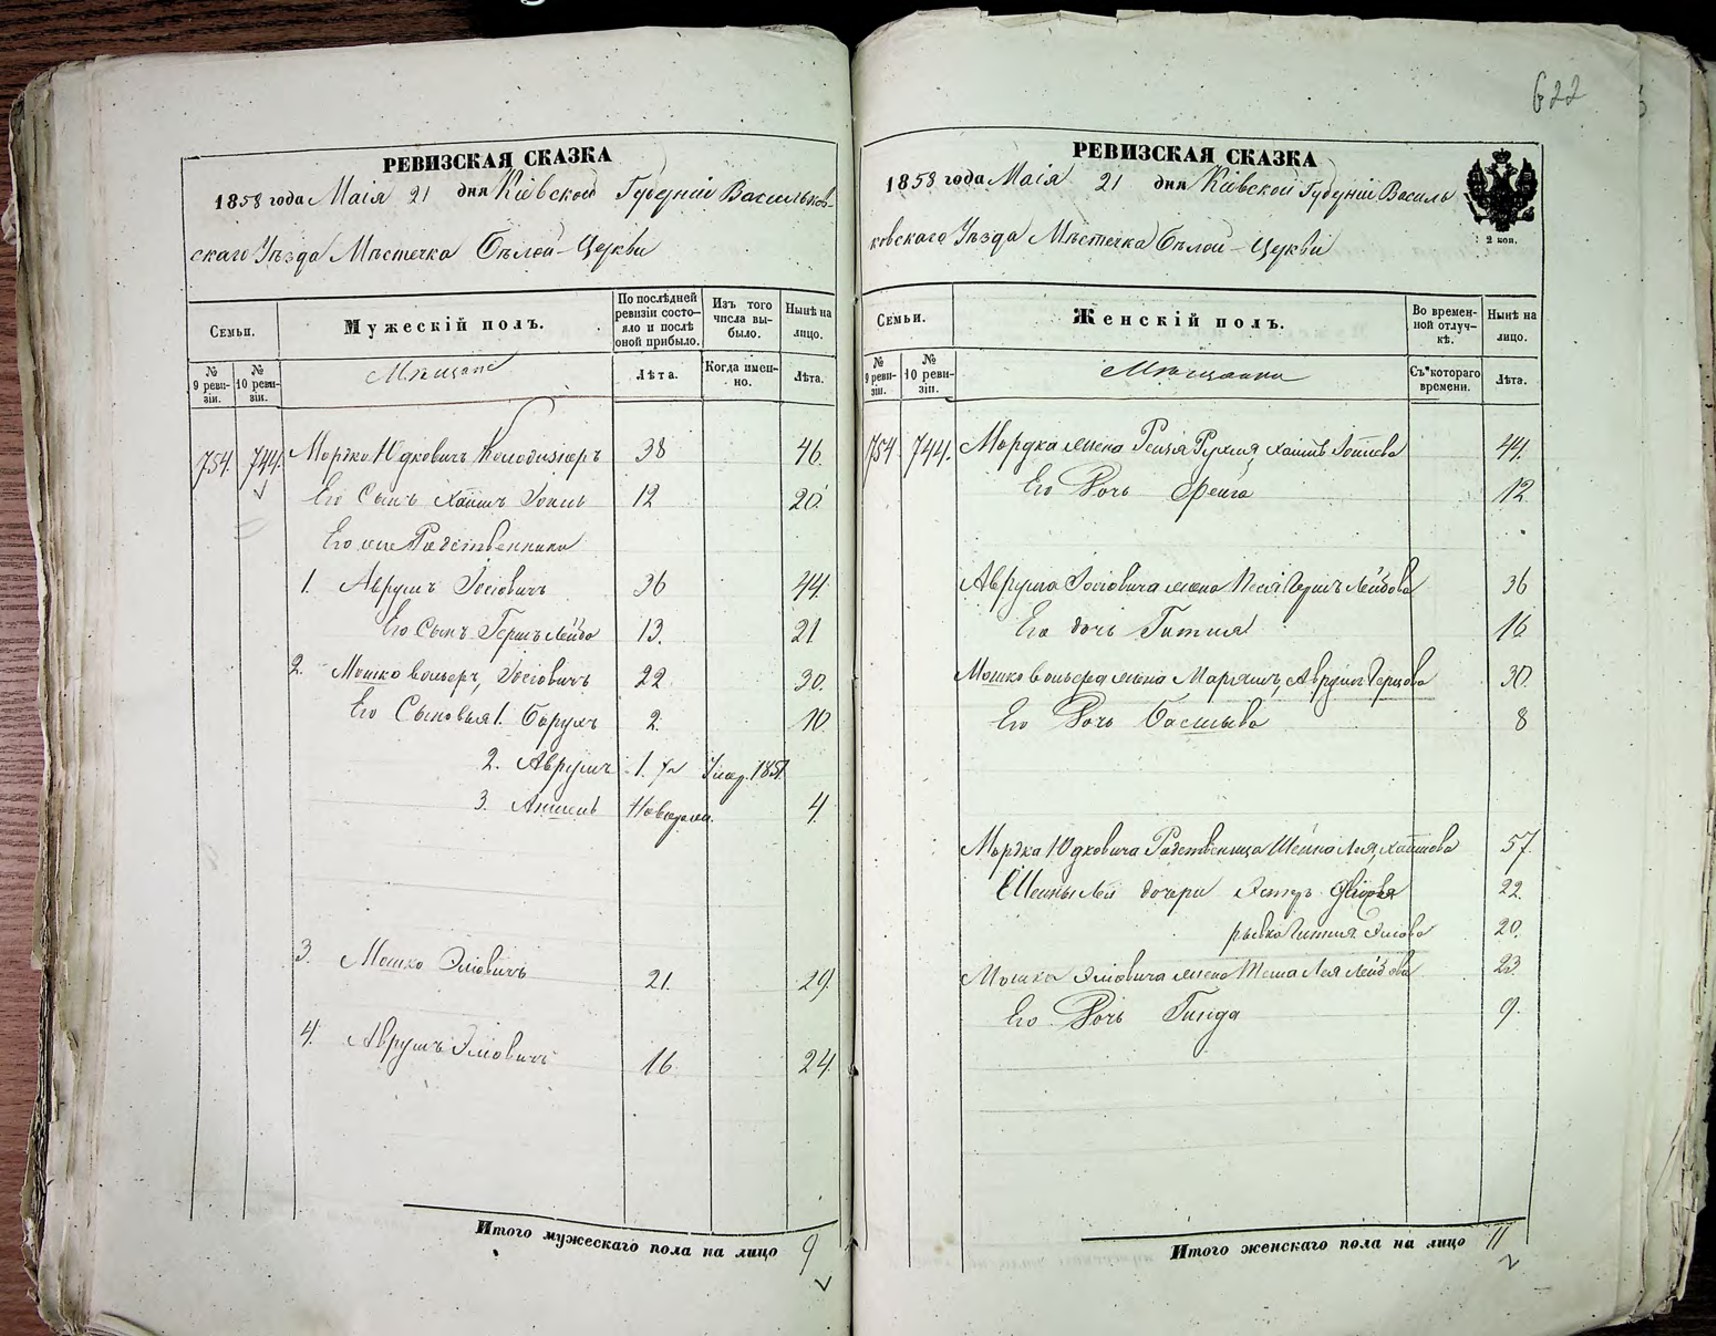 622
РЕВИЗСКАЯ СКАЗКА
1858 года Маія 21 дня Кіевской Губерніи Васильков-
скаго Уѣзда Мѣстечка Бѣлой-Церкви
Семьи.
Мужескій полъ.
По послѣдней ревизіи состо-яло и послѣ оной прибыло.
Изъ того числа вы-было.
Нынѣ на лицо.
№ 9 реви-зіи.
№ 10 реви-зіи.
Мѣщане
Лѣта.
Когда имен-но.
Лѣта.
754. 744. Мордко Юдковичъ 38 46.
Его Сынъ Хаимъ 12 20.
Его же Родственники
1. Аврумъ Іосіовичъ 36 44
Его Сынъ Гершъ Лейбо 13. 21
2. Мошко Вольеръ, Іосіовичъ 22 30.
Его Сыновья 1. Борухъ 2. 10
2. Аврумъ 1. 1/2 Умер. 1851
3. Аншель Новорожд. 4.
3. Мошко Эліовичъ 21. 29.
4. Аврумъ Эліовичъ 16. 24.
Итого мужескаго пола на лицо 9
РЕВИЗСКАЯ СКАЗКА
1858 года Маія 21 дня Кіевской Губерніи Василь
ковскаго Уѣзда Мѣстечка Бѣлой-Церкви
2 коп.
Семьи.
Женскій полъ.
Во времен-ной отлуч-кѣ.
Нынѣ на лицо.
№ 9 реви-зіи.
№ 10 реви-зіи.
Мѣщанки
Съ котораго времени.
Лѣта.
754 744. Мордка жена Рухля, 44.
Его Дочь Фейга 12.
Аврума Іосіовича жена Песя Гершъ Лейбова 36
Его дочь Гитля 16
Мошко Вольера жена Марьямъ, Аврумъ Герцова 30.
Его Дочь Басшева 8
Мордка Юдковича Родственница Шейна Лея, Хаимова 57.
Шейны Леи дочери Эстеръ 22.
рывка Гитля Эліова 20.
Мошка Эліовича жена Лея Лейбова 23
Его Дочь Гинда 9.
Итого женскаго пола на лицо 11